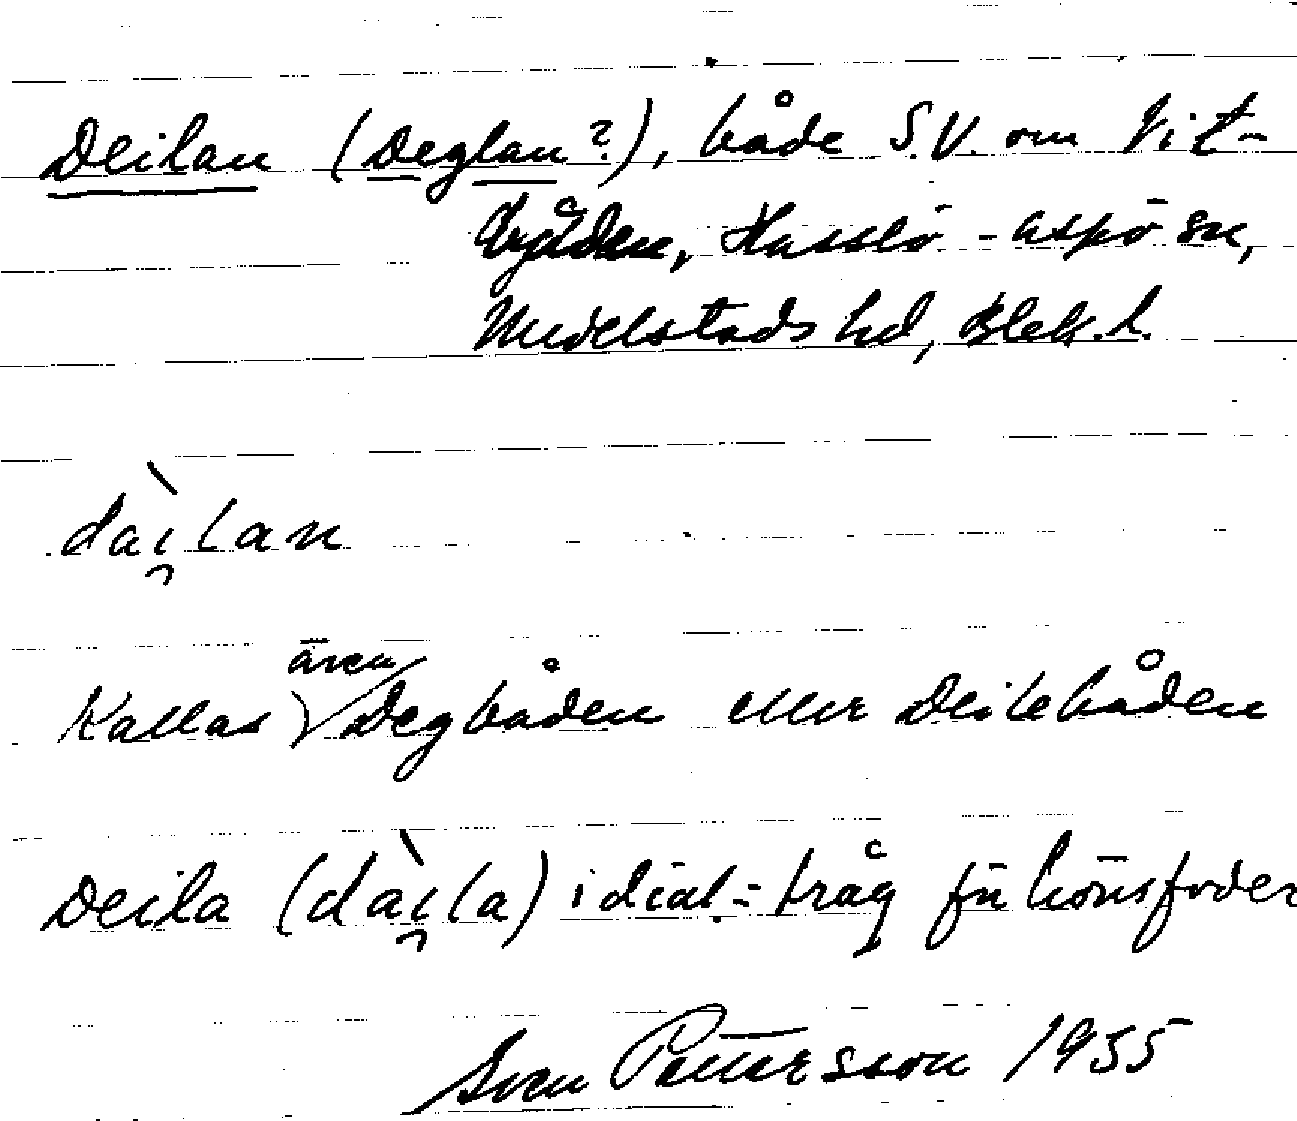 Deilan (Deglan?), både S.V. om Vit-
gråden, Hasslö-Aspö sn,
Medelstads hd, Blek. l.
dài̯lan
Kallas även Degbåden eller Deilebåden
Deila (dài̯la) i dial. = tråg för hönsfoder
Sven Pettersson 1955